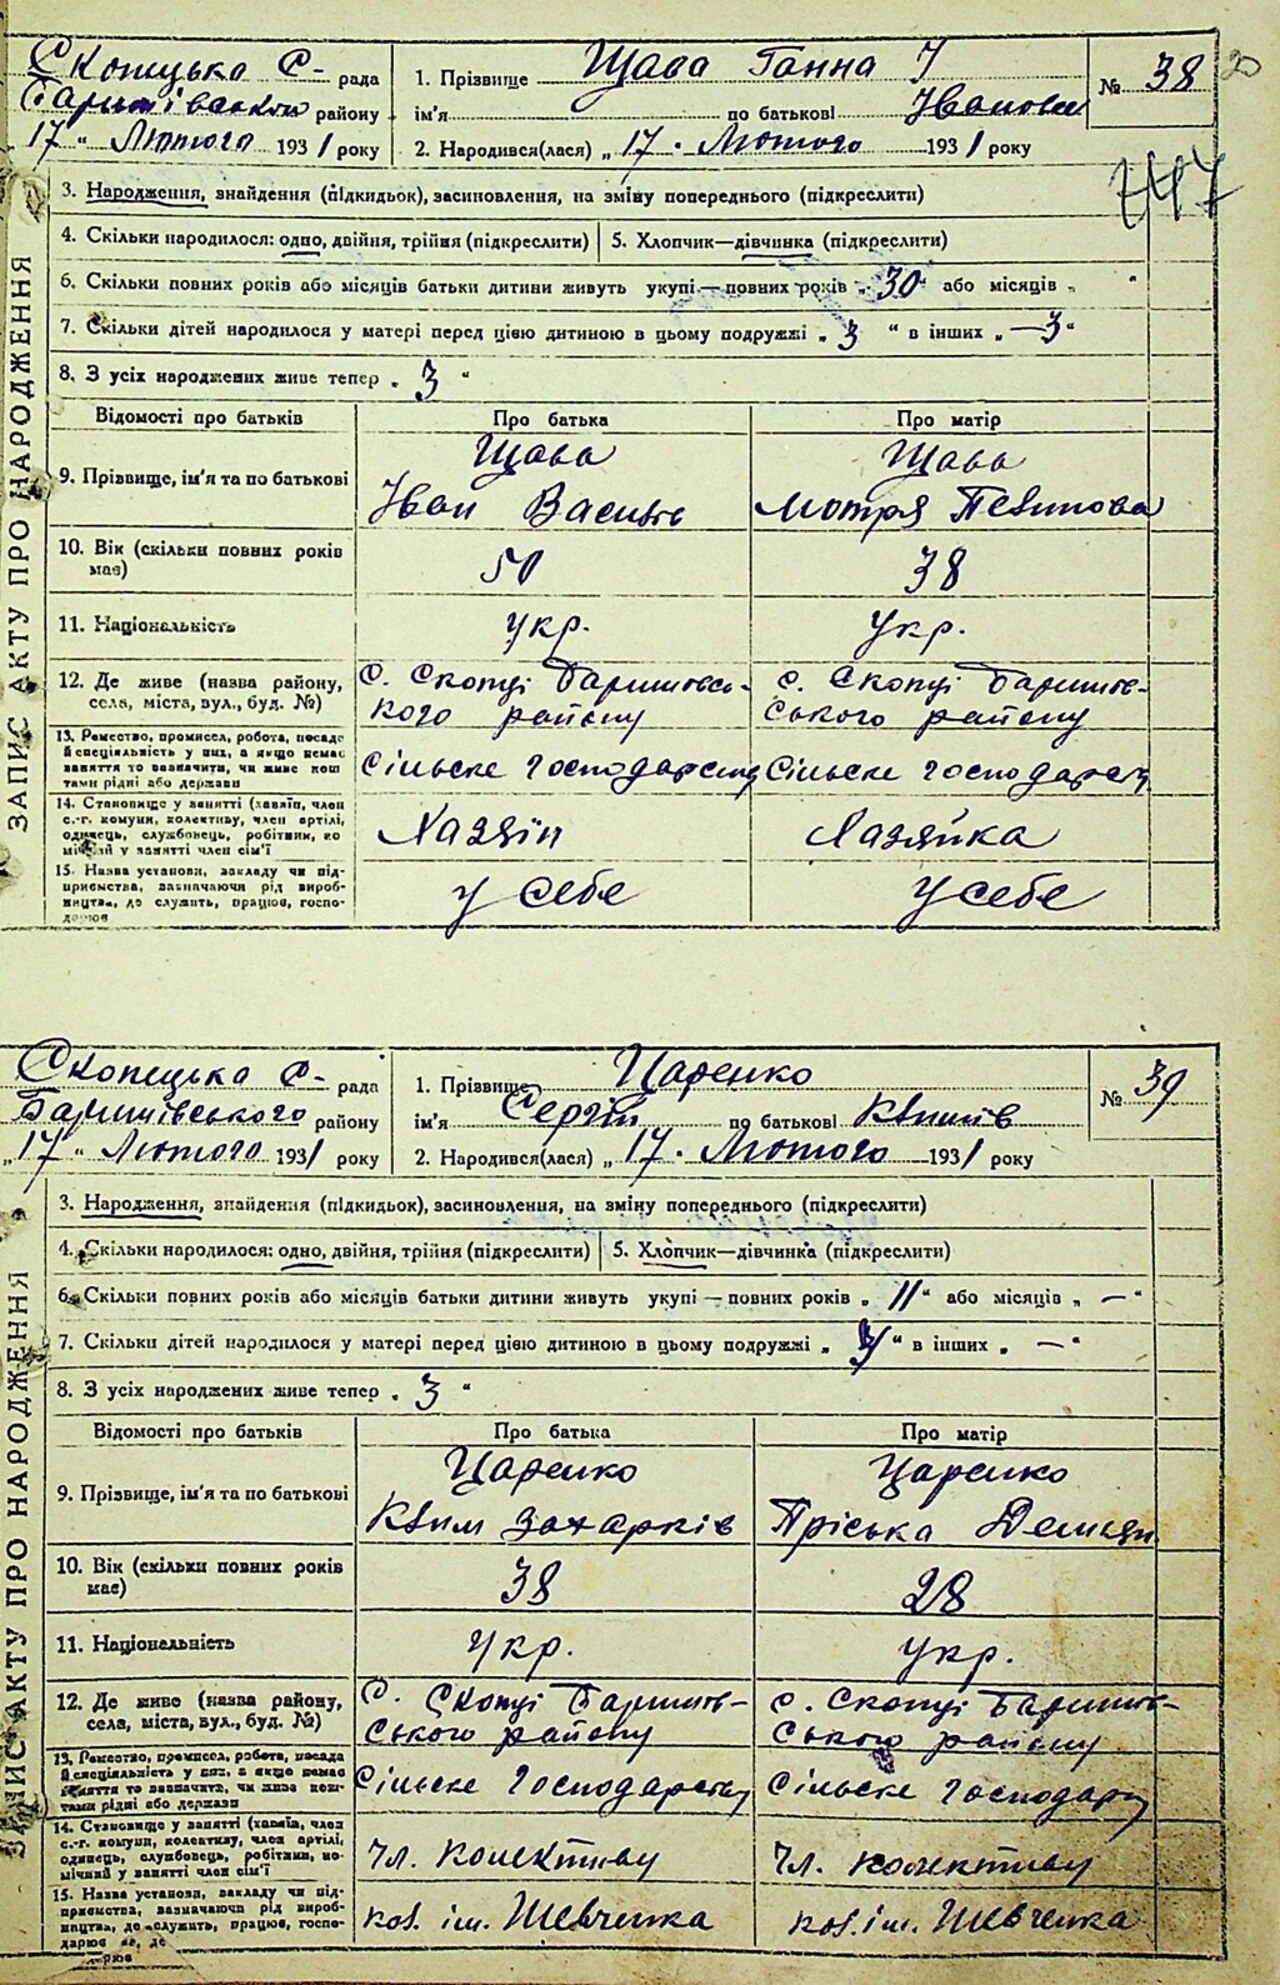 Скопецька С- рада
Баришівського району
„ 17 “ Лютого 1931 року
1. Прізвище Щава Ганна І
ім'я по батькові Іванова
2. Народився(лася) „ 17 . Лютого 1931 року
№ 38
20
ЗАПИС АКТУ ПРО НАРОДЖЕННЯ
3. Народження, знайдення (підкидьок), засиновлення, на зміну попереднього (підкреслити)
4. Скільки народилося: одно, двійня, трійня (підкреслити) 5. Хлопчик—дівчинка (підкреслити)
6. Скільки повних років або місяців батьки дитини живуть укупі—повних років „ 30 “ або місяців „ “
7. Скільки дітей народилося у матері перед цією дитиною в цьому подружжі „ 3 “ в інших „ —3 “
8. З усіх народжених живе тепер „ 3 “
Відомості про батьків Про батька Про матір
9. Прізвище, ім'я та по батькові
Щава Щава
Іван Мотря
10. Вік (скільки повних років має) 50 38
11. Національність укр. Укр.
12. Де живе (назва району, села, міста, вул., буд. №)
с. Скопці Баришовсь- с. Скопці Баришів-
кого району ського району
13. Ремество, промисел, робота, посада
й спеціяльність у них, а якщо немає
заняття то зазначити, чи живе кош
тами рідні або держави
Сільське господарство Сільське господарств
14. Становище у занятті (хазяїн, член
с.-г. комуни, колективу, член артілі,
одинець, службовець, робітник, по
мічний у занятті член сім'ї
Хазяїн Хазяйка
15. Назва установи, закладу чи під-
приємства, зазначаючи рід вироб-
ництва, де служить, працює, госпо-
дарює
у себе у себе
Скопецька С- рада
Баришівського району
„ 17 “ Лютого 1931 року
1. Прізвище Царенко
ім'я Сергій по батькові
2. Народився(лася) „ 17 . Лютого 1931 року
№ 39
ЗАПИС АКТУ ПРО НАРОДЖЕННЯ
3. Народження, знайдення (підкидьок), засиновлення, на зміну попереднього (підкреслити)
4. Скільки народилося: одно, двійня, трійня (підкреслити) 5. Хлопчик—дівчинка (підкреслити)
6. Скільки повних років або місяців батьки дитини живуть укупі—повних років „ 11 “ або місяців „ — “
7. Скільки дітей народилося у матері перед цією дитиною в цьому подружжі „ 3 “ в інших „ — “
8. З усіх народжених живе тепер „ 3 “
Відомості про батьків Про батька Про матір
9. Прізвище, ім'я та по батькові
Царенко Царенко
Захарків Пріська Демян.
10. Вік (скільки повних років має) 38 28
11. Національність укр. укр.
12. Де живе (назва району, села, міста, вул., буд. №)
с. Скопці Баришів- с. Скопці Баришів-
ського району ського району
13. Ремество, промисел, робота, посада
й спеціяльність у них, а якщо немає
заняття то зазначити, чи живе кош-
тами рідні або держави
Сільське господарству Сільське господарц
14. Становище у занятті (хазяїн, член
с.-г. комуни, колективу, член артілі,
одинець, службовець, робітник, по-
мічний у занятті член сім'ї
чл. колективу чл. колективу
15. Назва установи, закладу чи під-
приємства, зазначаючи рід вироб-
ництва, де служить, працює, госпо-
дарює
кол. ім. Шевченка кол. ім. Шевченка